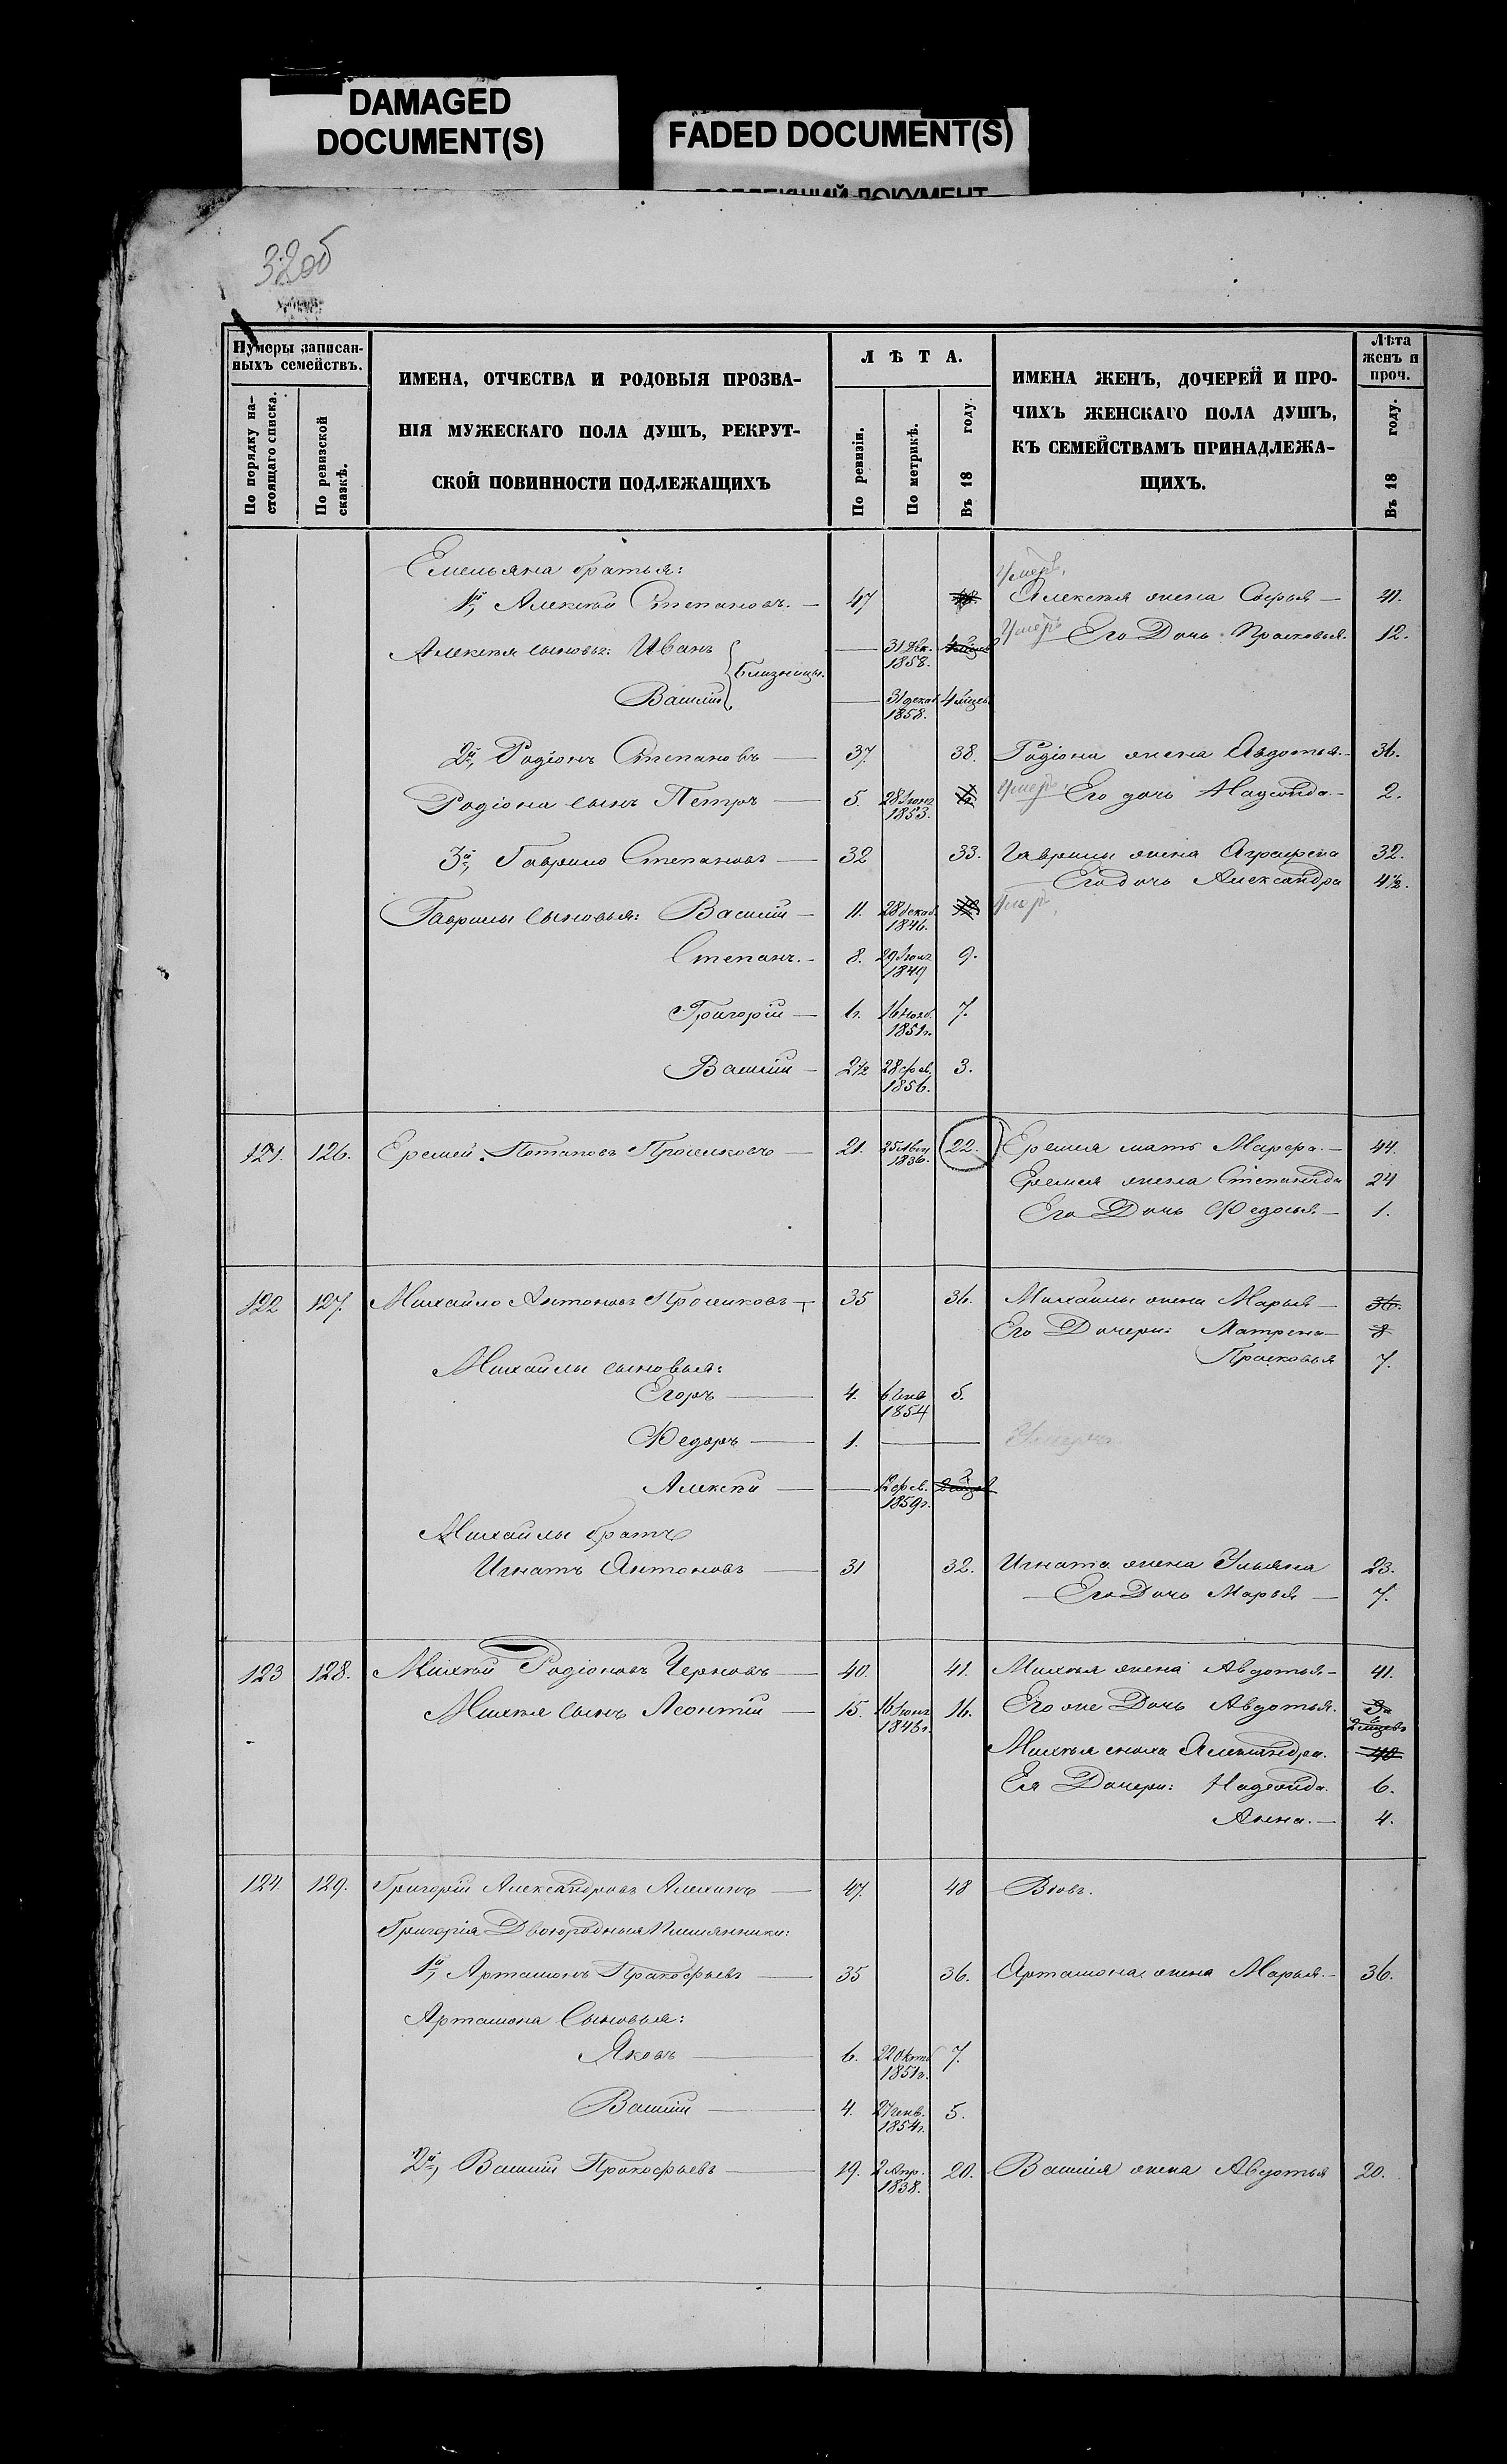 DAMAGED
DOCUMENT(S)
FADED DOCUMENT(S)
32об
Нумеры записан-
ныхъ семействъ.
По порядку на-
стоящаго списка.
По ревизской
сказкѣ.
ИМЕНА, ОТЧЕСТВА И РОДОВЫЯ ПРОЗВА-
НІЯ МУЖЕСКАГО ПОЛА ДУШЪ, РЕКРУТ-
СКОЙ ПОВИННОСТИ ПОДЛЕЖАЩИХЪ
ЛѢТА.
По ревизіи.
По метрикѣ.
Въ 18 году.
ИМЕНА ЖЕНЪ, ДОЧЕРЕЙ И ПРО-
ЧИХЪ ЖЕНСКАГО ПОЛА ДУШЪ,
КЪ СЕМЕЙСТВАМЪ ПРИНАДЛЕЖА-
ЩИХЪ.
Лѣта
женъ и
проч.
Въ 18 году.
Емельяна братья:
Умеръ,
1й, Алексѣй Степановъ. — 47 Алексѣя жена Софья — 41.
Алексѣя сыновья: Иванъ — 31 Дек. Умеръ Его Дочь Прасковья. 12.
1858.
Близнецы.
Василій — 31 декаб. 4 мѣсец.
1858.
2й, Родіонъ Степановъ — 37. 38. Родіона жена Авдотья. — 36.
Родіона сынъ Петръ — 5. 28 Іюня Умеръ Его дочь Надежда — 2.
1853.
3й, Гаврило Степановъ — 32 33. Гаврилы жена Аграфена 32.
Его дочь Александра 4½.
Гаврилы сыновья: Василій — 11. 28 декаб. Умеръ,
1846.
Степанъ. — 8. 29 Іюля 9.
1849
Григорій — 6. 16 Нояб. 7.
1851г.
Василій — 2½ 28 фев. 3.
1856.
121. 126. Еремей Потаповъ — 21. 25 Авг. 22. Еремея мать Марфа. — 44.
1836.
Еремея жена Степанида 24
Его Дочь Федосья — 1.
122 127. Михайло Антоновъ — 35 36. Михайлы жена Марья — 36.
Его Дочери: Матрена — 8
Прасковья 7.
Михайлы сыновья:
Егоръ — 4. 6 Янв 5.
1854
Федоръ — 1. — Умеръ
Алексѣй — 12 фев. 2 мѣсец
1859г.
Михайлы братъ
Игнатъ Антоновъ — 31 32. Игната жена Ульяна 23.
— Его Дочь Марья — 7.
123 128. Михѣй Родіоновъ Черновъ — 40. 41. Михѣя жена Авдотья — 41.
Михѣя сынъ Леонтій — 15. 16 Іюня 16. Его же Дочь Авдотья.
2 мѣсец
Михѣя сноха Александра. 40
Ея Дочери: Надежда. 6.
Анна. — 4.
124 129. Григорій Александровъ Алехинъ — 47. 48 Вдовъ.
Григорія Двоюродныя Племянники:
1й, Артамонъ Прокофьевъ — 35 36. Артамона жена Марья. — 36.
Артамона Сыновья:
Яковъ — 6. 22 Октяб 7.
1851г.
Василій — 4. 27 генв. 5.
1854г.
2й, Василій Прокофьевъ — 19. 2 Апр. 20. Василія жена Авдотья 20.
1838.